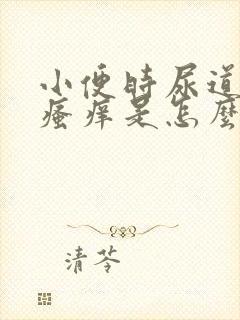 小便时尿道
瘙痒是怎麼
清苓